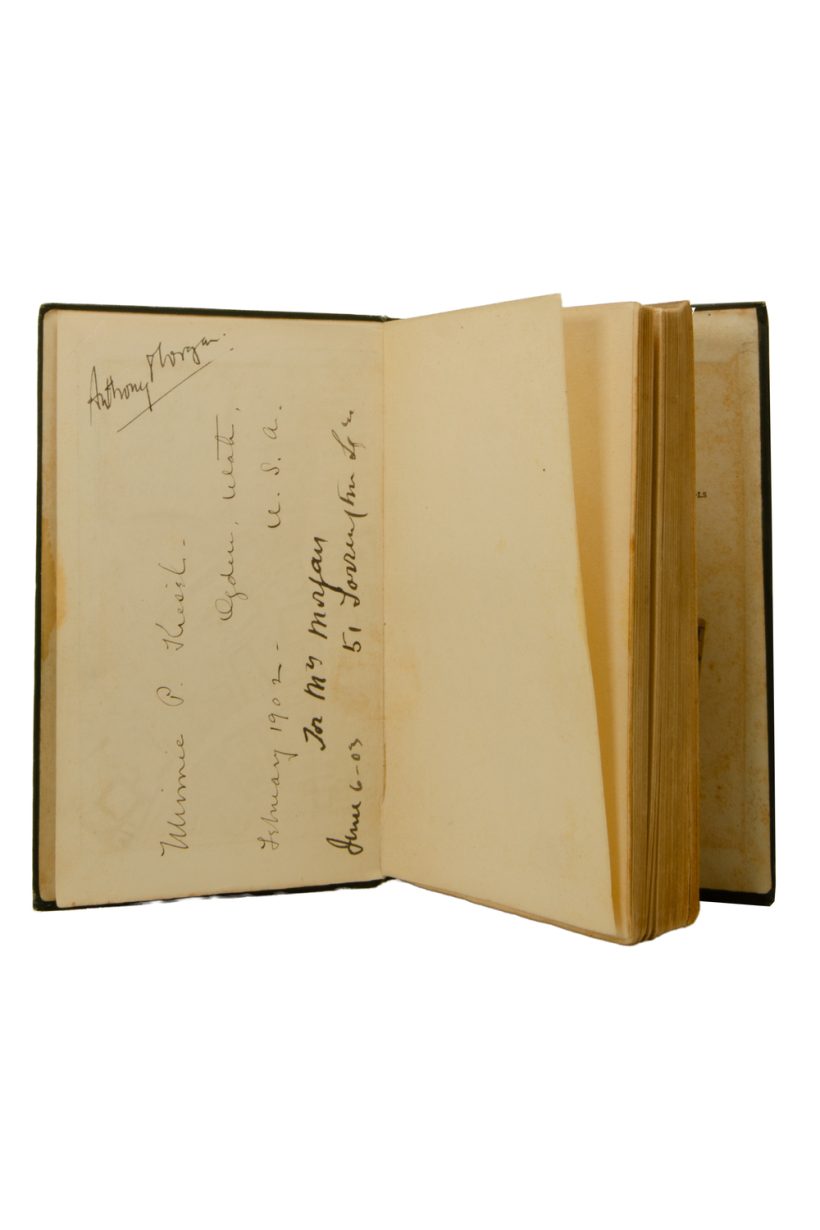 Anthony Morgan.
Minnie P. Kiesel.-
Ogden, Utah,
February 1902- U. S. A.
For Mrs Morgan
June 6-03 51 Torrington Sqre
LS